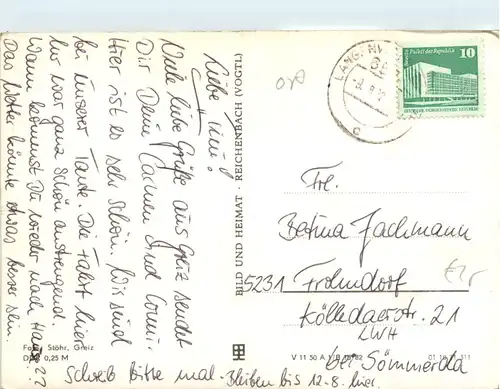 Liebe
Viele liebe Grüße aus Greiz sendet
Dir Deine Carmen und Conni.
Hier ist es sehr schön. Wir sind
bei unserer Tante. Die Fahrt hier
her war ganz schön anstrengend.
Wann kommst Du wieder nach Hause??
Das Wetter könnte etwas besser sein.
Schreib bitte mal. Bleiben bis 12.8. hier.
Foto: Stöhr, Greiz
0,25 M
BILD UND HEIMAT · REICHENBACH (VOGTL)
V 11 50 A 1/B
01 311
LANGENW
Palast der Republik
10
Frl.
Betina Jachmann
5231 Frohndorf
Kölledaerstr. 21
LWH
bei Sömmerda